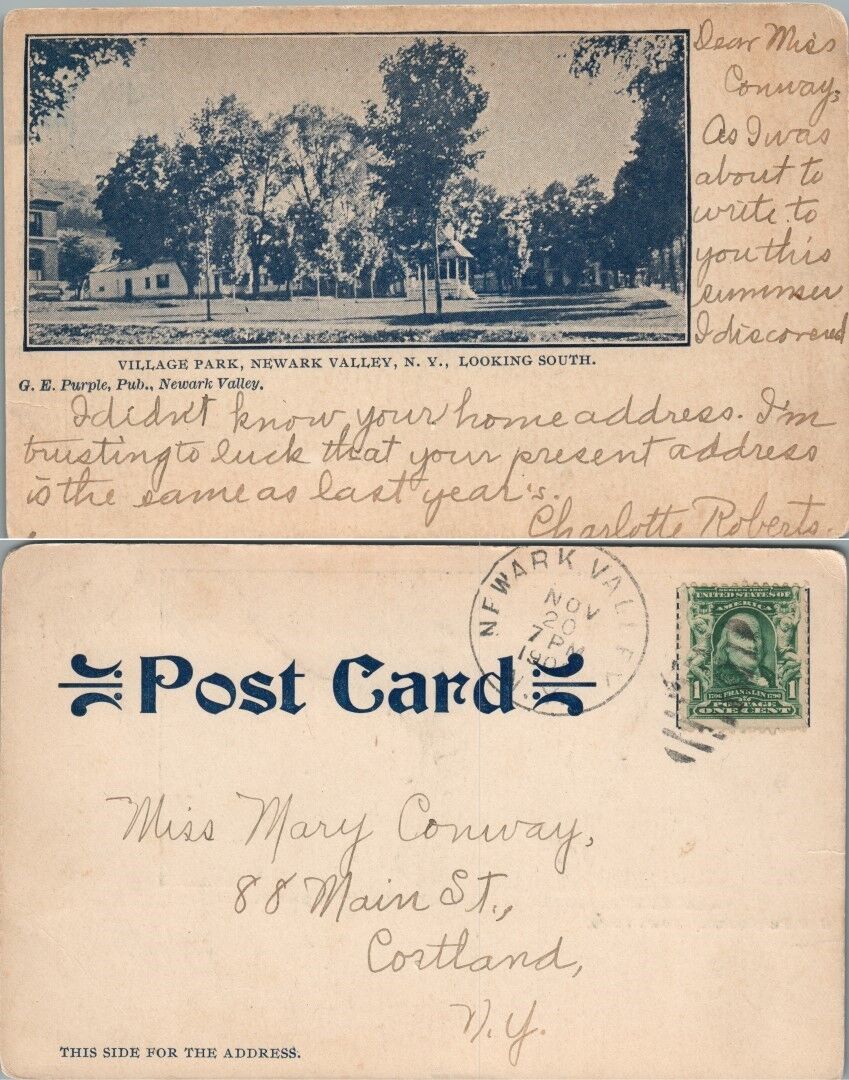 Dear Miss
Conway,
As I was
about to
write to
you this
summer
I discovered
VILLAGE PARK, NEWARK VALLEY, N. Y., LOOKING SOUTH.
G. E. Purple, Pub., Newark Valley.
I didn't know your home address. I'm
trusting to luck that your present address
is the same as last year's.
Charlotte Roberts.
NEWARK VALLEY
NOV
20
7 PM
190
N.Y.
Post Card
SERIES 1902
UNITED STATES OF
AMERICA
1 1706 FRANKLIN 1790 1
POSTAGE
ONE CENT
Miss Mary Conway,
88 Main St.,
Cortland,
N.Y.
THIS SIDE FOR THE ADDRESS.